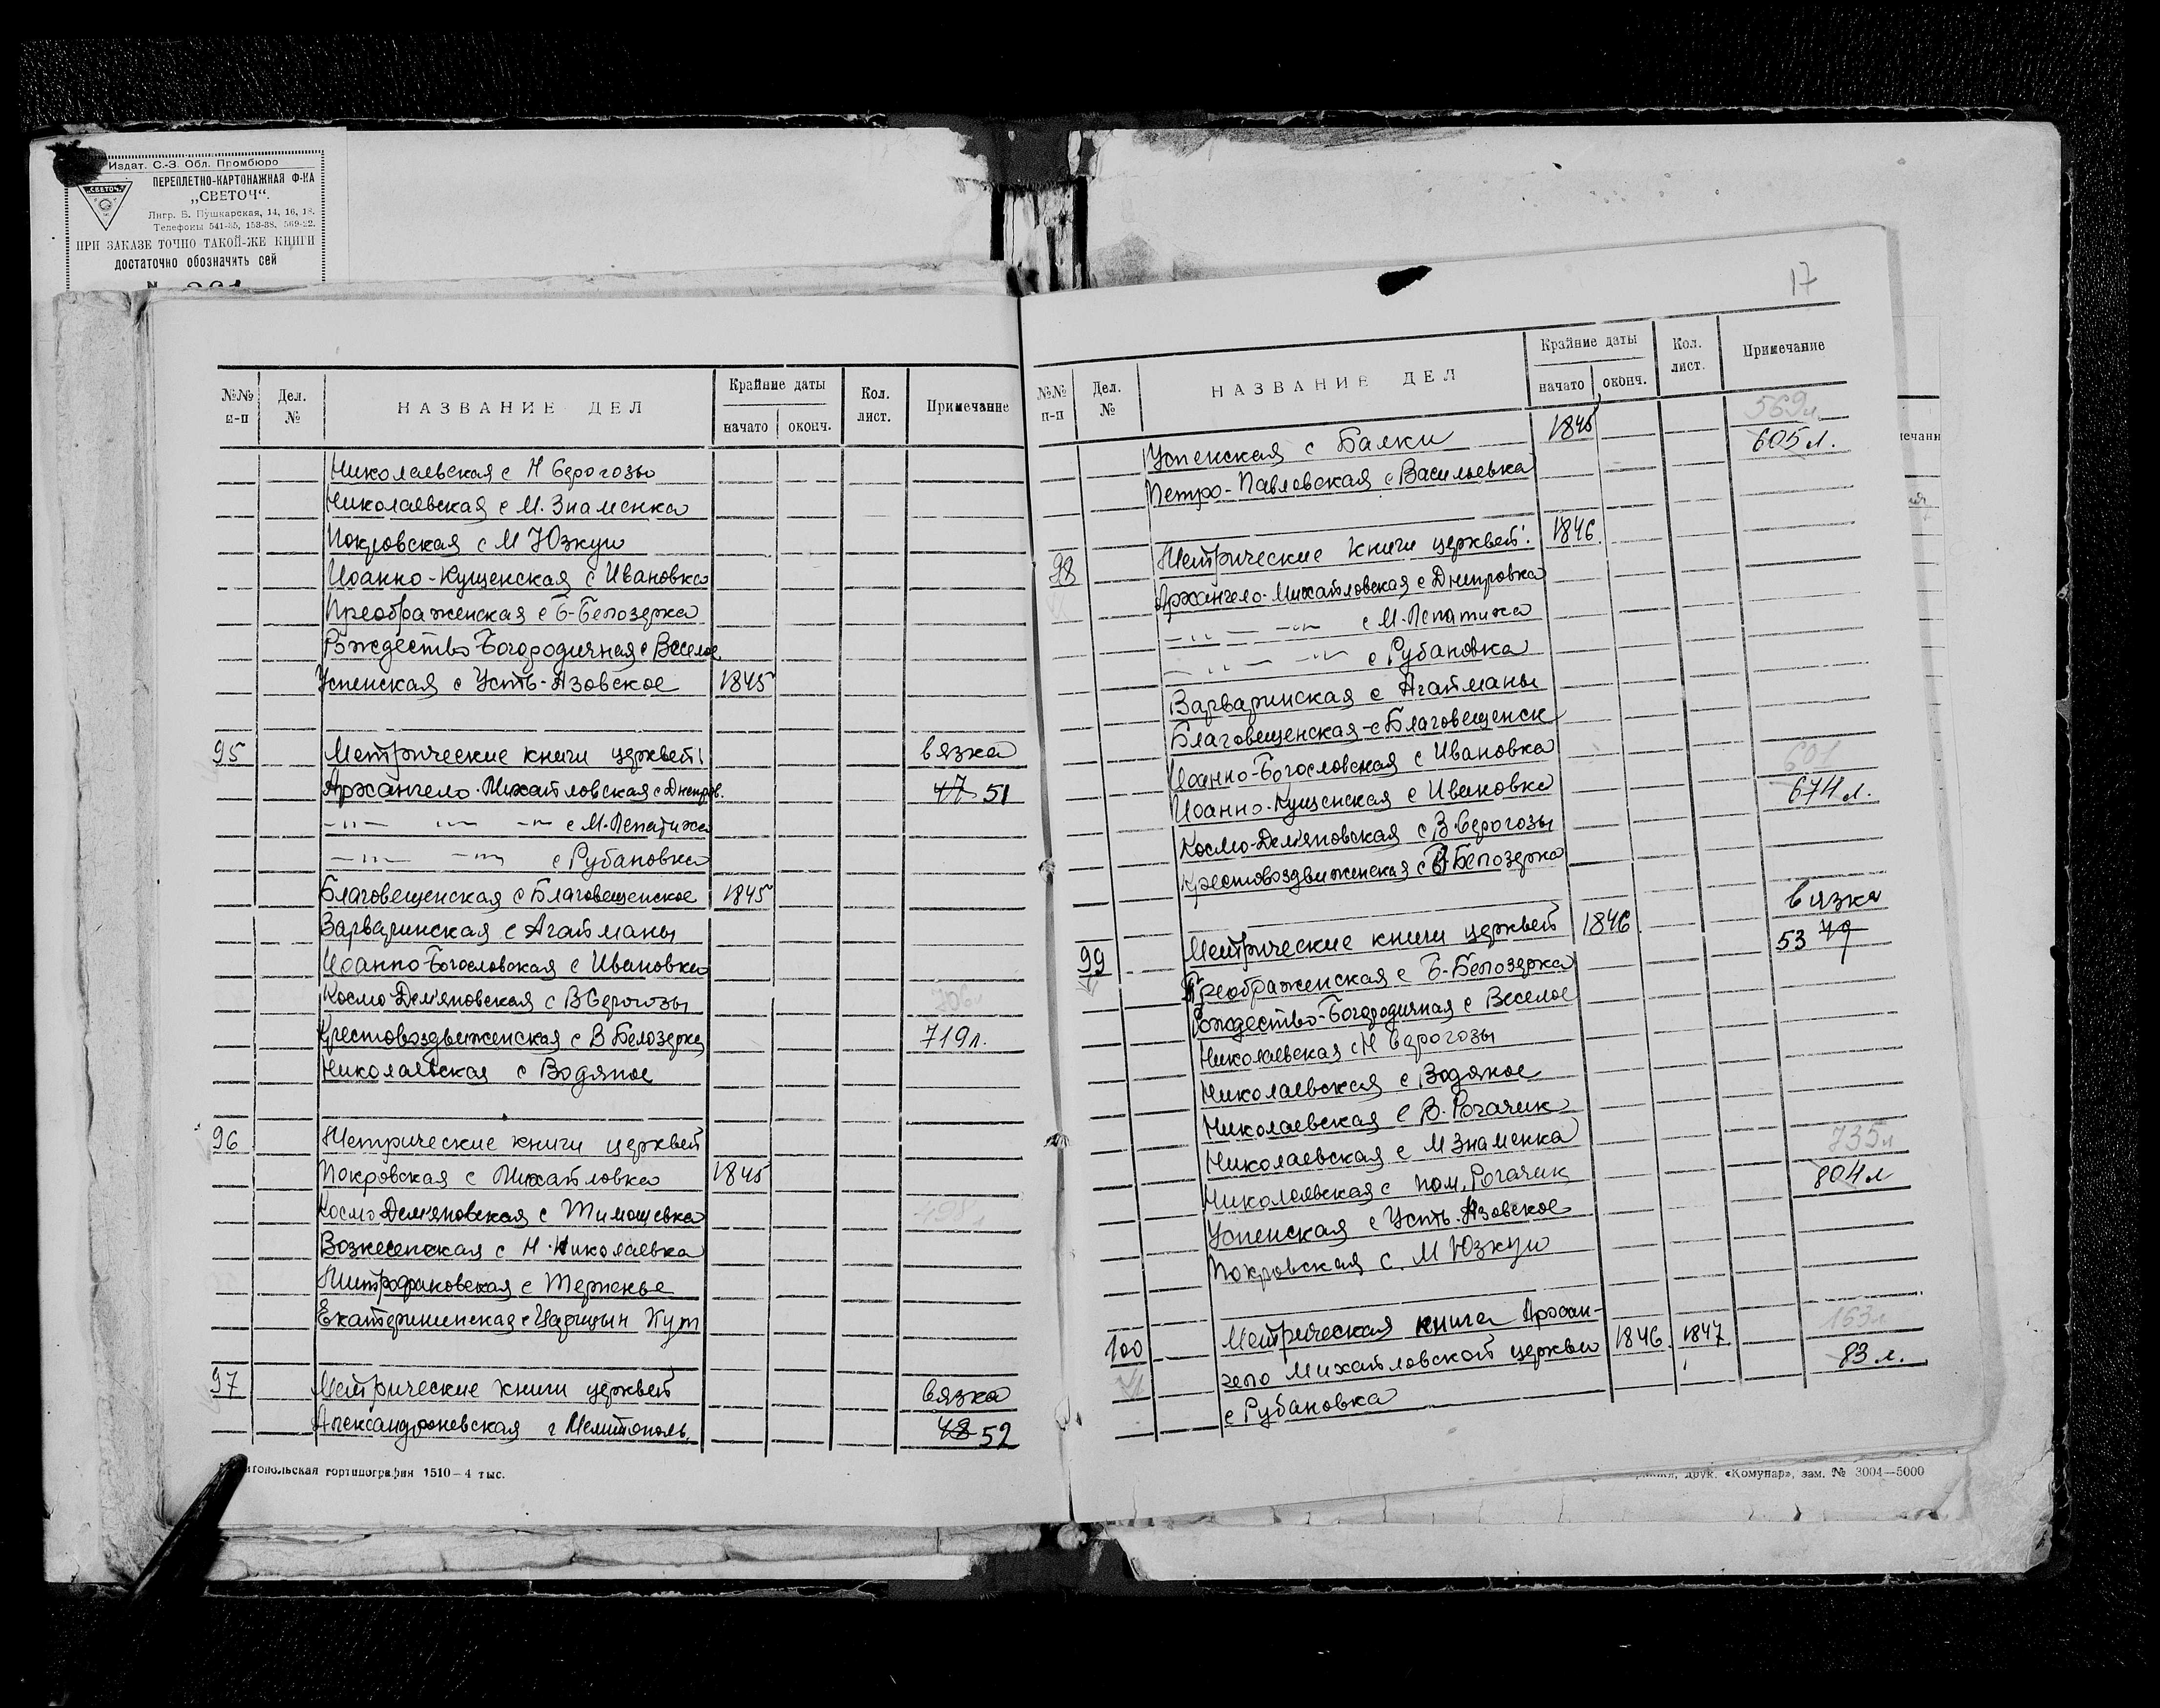 Издат. С.-З. Обл. Промбюро
ПЕРЕПЛЕТНО-КАРТОНАЖНАЯ Ф-КА
„СВЕТОЧ“.
СВЕТОЧ
Лнгр. Б. Пушкарская, 14, 16, 18.
Телефоны 541-85, 158-38, 569-22.
ПРИ ЗАКАЗЕ ТОЧНО ТАКОЙ-ЖЕ КНИГИ
достаточно обозначить сей
№№ п-п Дел. № НАЗВАНИЕ ДЕЛ Крайние даты начато оконч. Кол. лист. Примечание
Николаевская с Н Серогозы
Николаевская с М. Знаменка
Покровская с М Юзкуи
Иоанно-Кущенская с Ивановка
Преображенская с Б-Белозерка
Рождество Богородичная с Веселое
Успенская с Усть-Азовское 1845
95 Метрические книги церквей: вязка
Архангело-Михайловская с Днепров. 47 51
-"- -"- -"- с М-Лепатиха
-"- -"- с Рубановка
Благовещенская с Благовещенское 1845
Варваринская с Агайманы
Иоанно-Богословская с Ивановка
Космо-Демяновская с В Серогозы 706л
Крестовоздвиженская с В Белозерка 719л.
Николаевская с Водяное
96 Метрические книги церквей
Покровская с Михайловка 1845
Космо Демяновская с Тимошевка 498л
Вознесенская с Н-Николаевка
Митрофановская с Терпенье
Екатерининская с Царицын Кут
97 Метрические книги церквей вязка
Александроневская г Мелитополь 48 52
гортипография 1510–4 тыс.
17
№№ п-п Дел. № НАЗВАНИЕ ДЕЛ Крайние даты начато оконч. Кол. лист. Примечание
569л.
Успенская с Балки 1845 605л.
Петро-Павловская с Васильевка
98 Метрические книги церквей: 1846
Архангело-Михайловская с Днепровка
-"- -"- с М-Лепатиха
-"- -"- с Рубановка
Варваринская с Агайманы
Благовещенская-с Благовещенск
Иоанно-Богословская с Ивановка 601
Иоанно-Кущенская с Ивановка 674л.
Космо-Демяновская с В-Серогозы
Крестовоздвиженская с В-Белозерка
вязка
99 Метрические книги церквей 1846 53 49
Преображенская с Б-Белозерка
Рождество-Богородичная с Веселое
Николаевская с Н Серогозы
Николаевская с Водяное
Николаевская с В. Рогачик
Николаевская с М Знаменка 735л
Николаевская с пом. Рогачик 804л
Успенская с Усть-Азовское
Покровская с. М Юзкуи
100 Метрическая книга Архан- 163л
гело Михайловской церкви 1846 1847 83 л.
с Рубановка
друк. «Комунар», зам. № 3004—5000